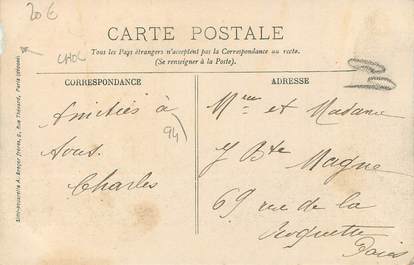 20 €
CHOC
CARTE POSTALE
Tous les Pays étrangers n'acceptent pas la Correspondance au recto.
(Se renseigner à la Poste).
CORRESPONDANCE
Amitiés à
94
vous.
Charles
ADRESSE
et Madame
J Bte Magne
69 rue de la
Roquette
Paris
A. Breger frères, 9, Rue Thénard, Paris